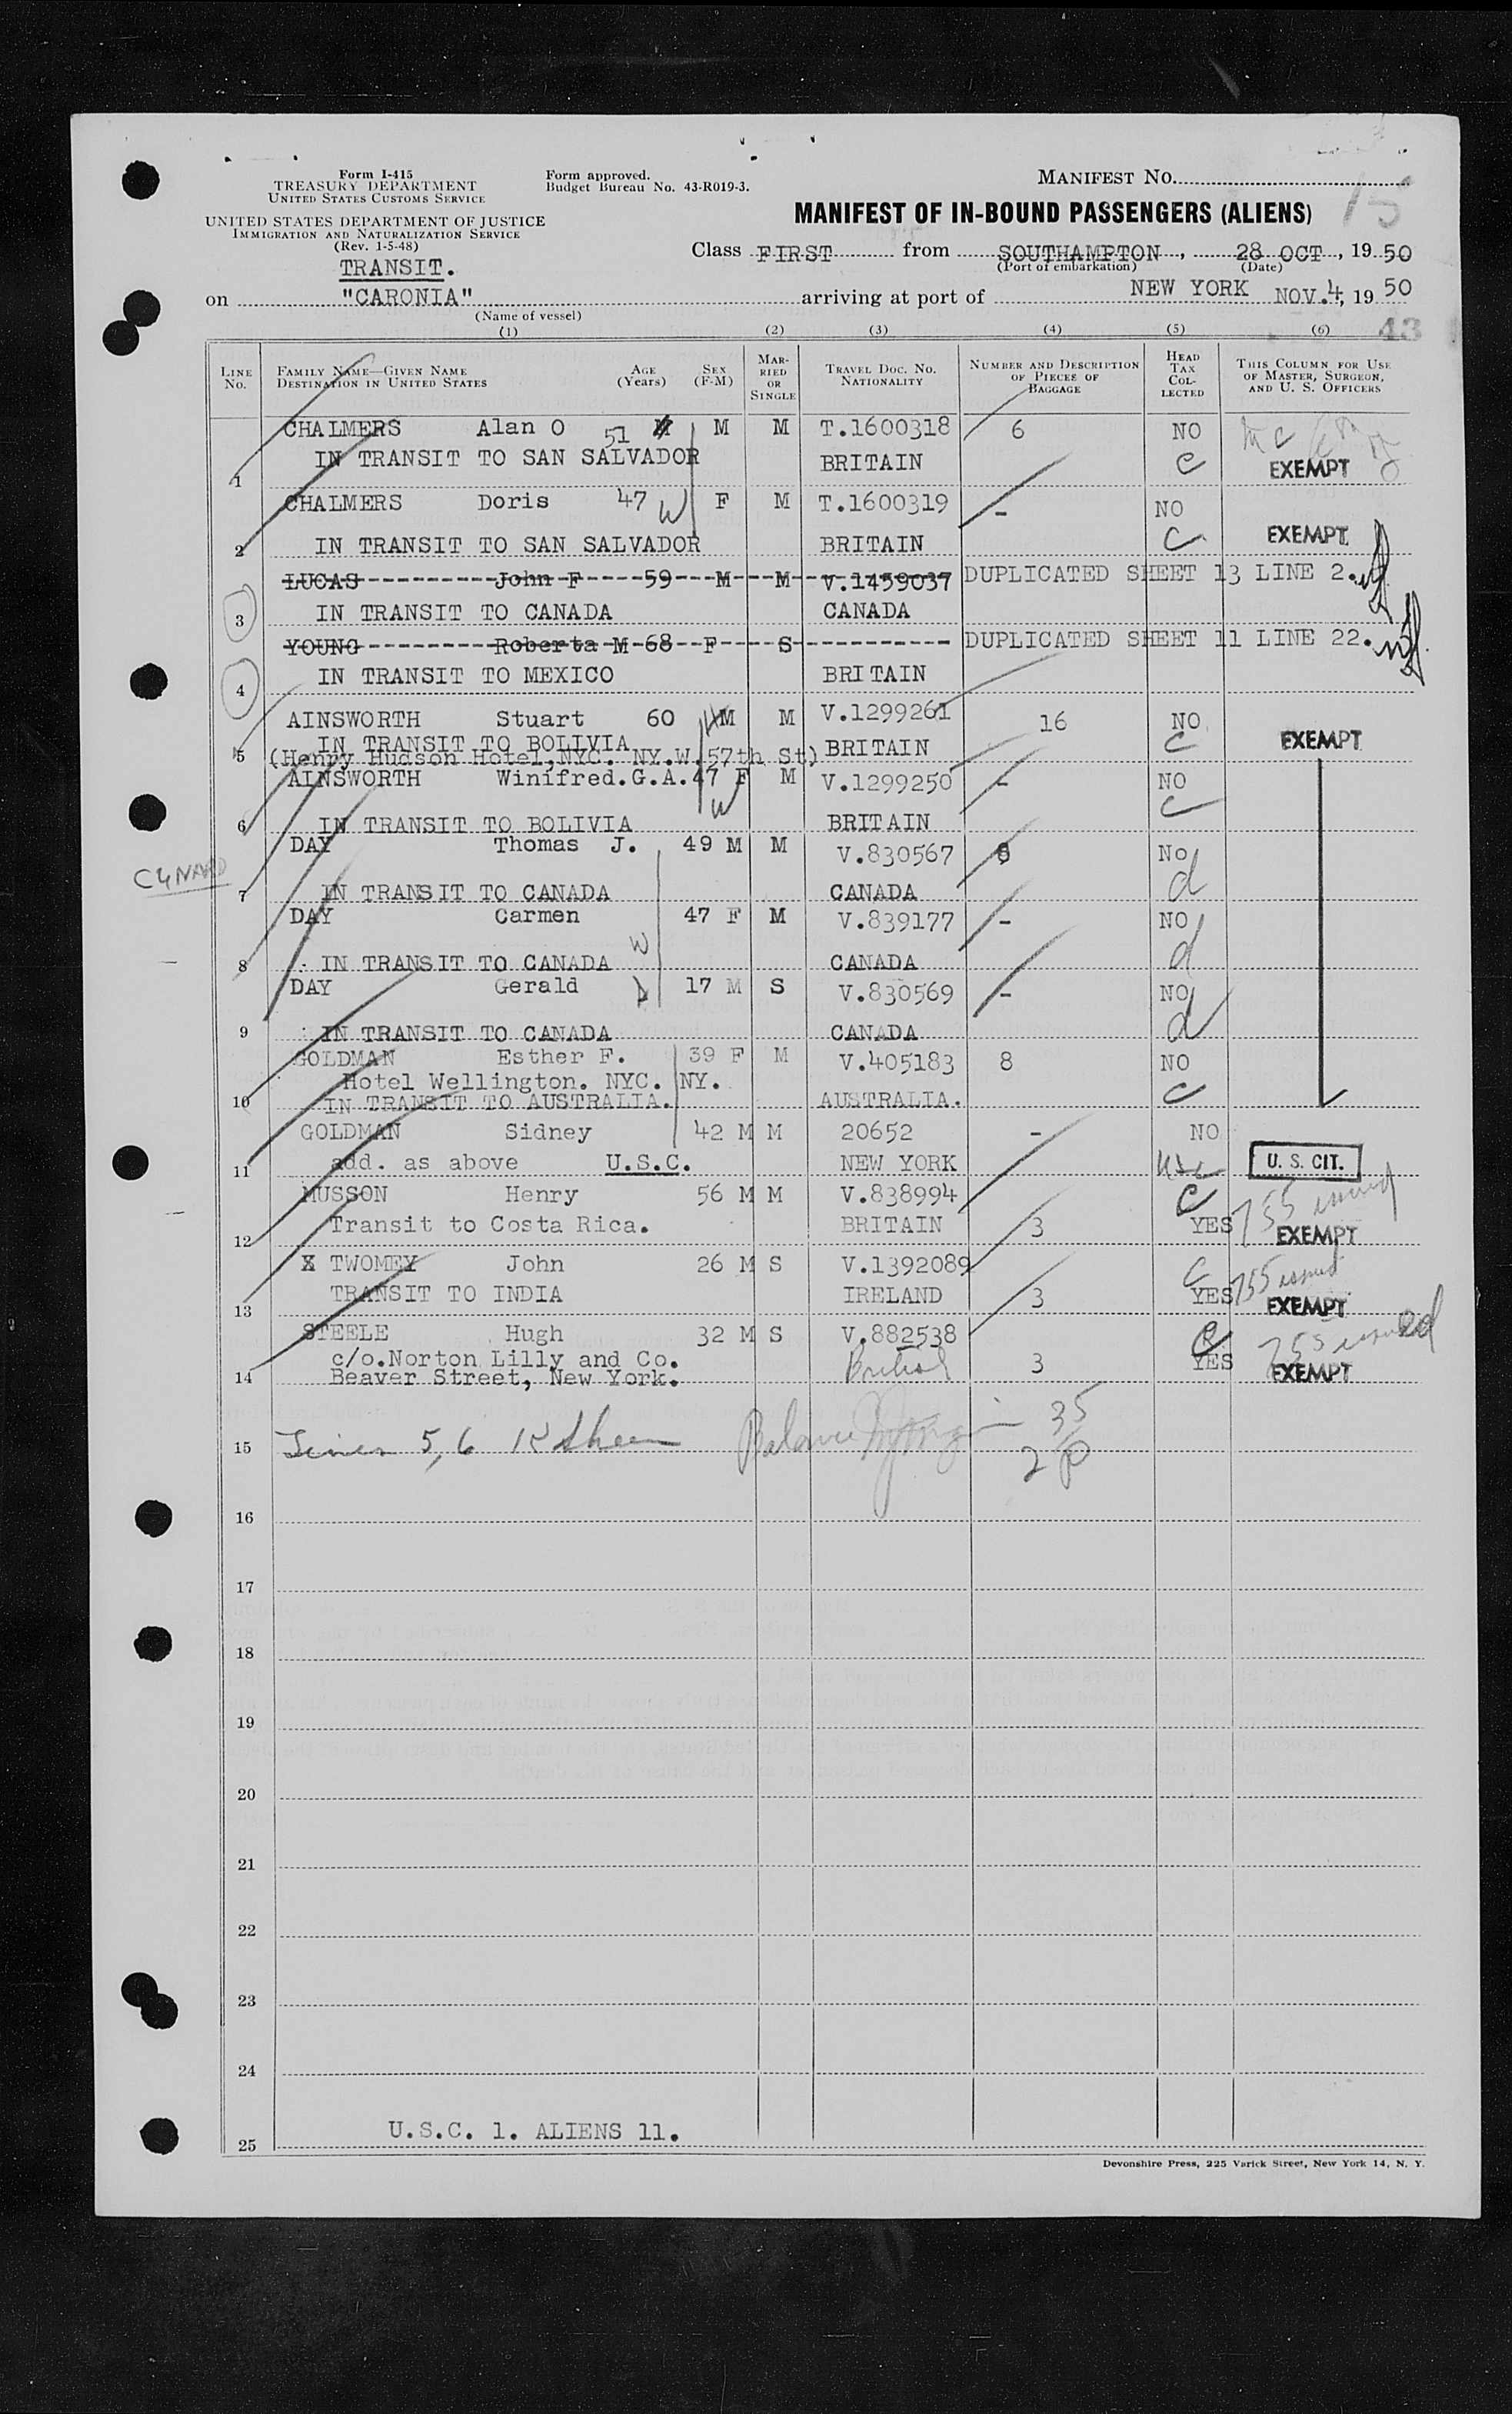 Form I-415
TREASURY DEPARTMENT
UNITED STATES CUSTOMS SERVICE
UNITED STATES DEPARTMENT OF JUSTICE
IMMIGRATION AND NATURALIZATION SERVICE
(Rev. 1-5-48)
Form approved.
Budget Bureau No. 43-R019-3.
MANIFEST NO.
15
MANIFEST OF IN-BOUND PASSENGERS (ALIENS)
Class FIRST from SOUTHAMPTON, 28 OCT, 1950
(Port of embarkation) (Date)
TRANSIT.
on "CARONIA" arriving at port of NEW YORK NOV.4, 1950
(Name of vessel)
(1) (2) (3) (4) (5) (6) 43
LINE No.
FAMILY NAME—GIVEN NAME
DESTINATION IN UNITED STATES
AGE (Years)
SEX (F-M)
MARRIED OR SINGLE
TRAVEL DOC. NO. NATIONALITY
NUMBER AND DESCRIPTION OF PIECES OF BAGGAGE
HEAD TAX COLLECTED
THIS COLUMN FOR USE OF MASTER, SURGEON, AND U. S. OFFICERS
CHALMERS Alan O 51 M M T.1600318 6 NO
1 IN TRANSIT TO SAN SALVADOR BRITAIN C EXEMPT
CHALMERS Doris 47 W F M T.1600319 - NO
2 IN TRANSIT TO SAN SALVADOR BRITAIN C EXEMPT
LUCAS John F 59 M M V.1459037 DUPLICATED SHEET 13 LINE 2.
3 IN TRANSIT TO CANADA CANADA
YOUNG Roberta M 68 F S DUPLICATED SHEET 11 LINE 22.
4 IN TRANSIT TO MEXICO BRITAIN
AINSWORTH Stuart 60 M M V.1299261 16 NO
IN TRANSIT TO BOLIVIA BRITAIN C EXEMPT
5 (Henry Hudson Hotel, NYC. NY.W.57th St)
AINSWORTH Winifred.G.A. 47 F M V.1299250 - NO
W C
6 IN TRANSIT TO BOLIVIA BRITAIN
DAY Thomas J. 49 M M V.830567 9 NO
CUNARD
7 IN TRANSIT TO CANADA CANADA d
DAY Carmen 47 F M V.839177 - NO
W
8 IN TRANSIT TO CANADA CANADA d
DAY Gerald 17 M S V.830569 - NO
9 IN TRANSIT TO CANADA CANADA d
GOLDMAN Esther F. 39 F M V.405183 8 NO
Hotel Wellington. NYC. NY.
10 IN TRANSIT TO AUSTRALIA. AUSTRALIA. C
GOLDMAN Sidney 42 M M 20652 - NO
11 add. as above U.S.C. NEW YORK USC U. S. CIT.
MUSSON Henry 56 M M V.838994 C
12 Transit to Costa Rica. BRITAIN 3 YES 755 issued EXEMPT
X TWOMEY John 26 M S V.1392089 C
13 TRANSIT TO INDIA IRELAND 3 YES 755 issued EXEMPT
STEELE Hugh 32 M S V.882538 C
c/o.Norton Lilly and Co. British 3 YES 755 issued
14 Beaver Street, New York. EXEMPT
15 Lines 5, 6 Balance 35
2
16
17
18
19
20
21
22
23
24
U.S.C. 1. ALIENS 11.
25
Devonshire Press, 225 Varick Street, New York 14, N. Y.